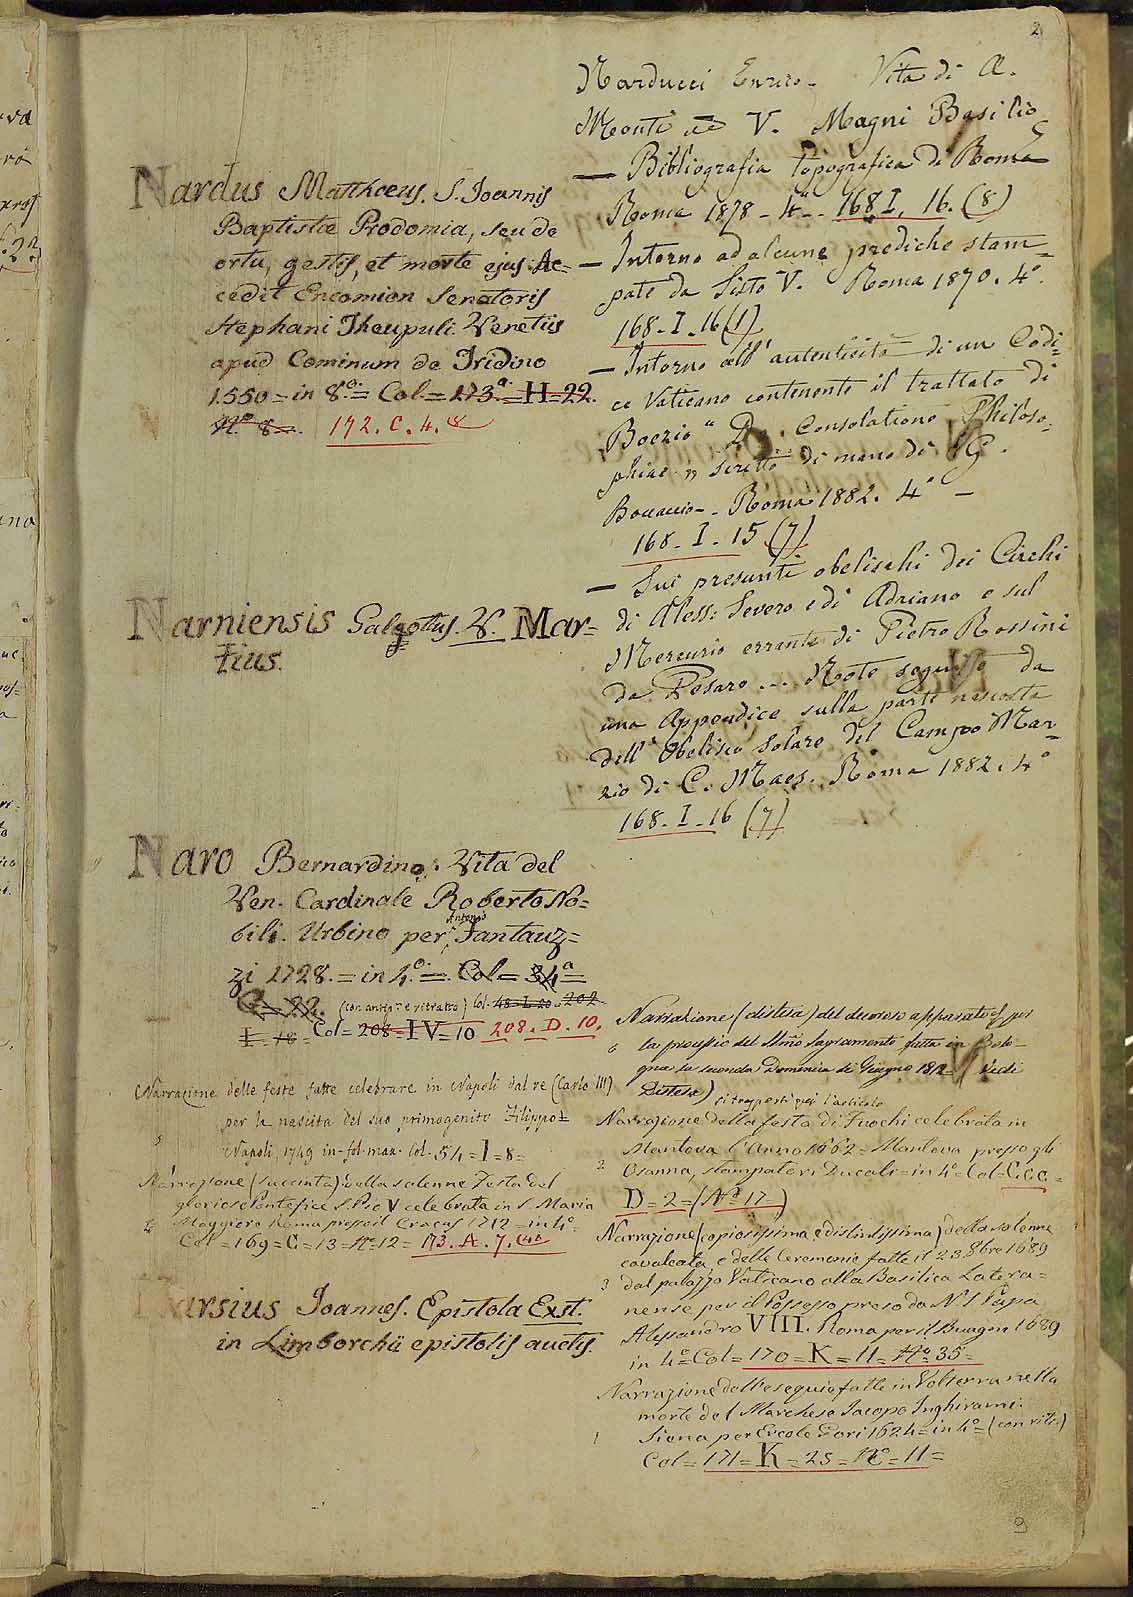 2
Nardus Matthoeus. S. Joannis
Baptistæ Prodomia, seu de
ortu, gestis, et morte ejus. Ac=
cedit Encomion Senatoris
Stephani Theupuli. Venetiis
apud Cominum de Tridino
1550 = in 8.º = Col. = 173.ª = H = 22.
Nº 8 =. 172. C. 4. 8
Narniensis Galeottus. V. Mar=
tius.
Naro Bernardino. Vita del
Ven. Cardinale Roberto No=
bili. Urbino per Antonio Fantauz=
zi 1728. = in 4.º = Col = 34ª =
G = 22. (con antip.ª e ritratto) Col. 48 = I. 20 = 202
I = 18 = Col = 208 = IV = 10 208. D. 10.
Narrazione delle feste fatte celebrare in Napoli dal re (Carlo III)
per la nascita del suo primogenito Filippo =
5 Napoli, 1749 in-fol. max. Col. 54 = I = 8 =
Narrazione (succinta) della solenne Festa del
glorioso Pontefice S. Pio V celebrata in S. Maria
4 Maggiore Roma presso il Cracas 1712 = in 4º =
Col = 169 = G = 13 = Nº 12 = 173. A. 7. (4ª
Narsius Joannes. Epistola Exst.
in Limborchii epistolis auctis.
Narducci Enrico - Vita di A.
Monti ad V. Magni Basilio
— Bibliografia topografica di Roma
Roma 1878 - 4º - 168 I. 16. (8)
— Intorno ad alcune prediche stam=
pate da Sisto V. Roma 1870. 4º.
168 - I - 16 (1)
— Intorno all'autenticità di un Codi=
ce Vaticano contenente il trattato di
Boezio " De Consolatione Philoso=
phiae " scritto di mano di G.
Boccaccio - Roma 1882. 4º —
168 - I - 15 (7)
— Sui presunti obelischi dei Circhi
di Aless. Severo e di Adriano e sul
Mercurio errante di Pietro Rossini
da Pesaro ... Note seguite da
una Appendice sulla parte nascosta
dell' Obelisco Solare del Campo Mar=
zio di C. Maes. Roma 1882. 4º
168 - I - 16 (7)
Narrazione (distesa) del decoroso apparato &c per
6 la processio del SSmo Sagramento fatta in Bolo=
gna la seconda Domenica di Giugno 1812 // Vedi
Distesa) si trasporti qui l'articolo
Narrazione della festa di Fuochi celebrata in
Mantova l'Anno 1662 = Mantova presso gli
2 Osanna, stampatori Ducali = in 4º = Col = C.c.c. =
D = 2 = (Nº 17 =)
Narrazione (copiosissima e distintissima) della solenne
cavalcata, e delle Ceremonie fatte il 23. 8bre 1689
3 dal palazzo Vaticano alla Basilica Latera=
nense per il Possesso preso da N. S. Papa
Alessandro VIII. Roma per il Buagni 1689
in 4º = Col = 170 = K = 11 = Nº 35 =
Narrazione dell'esequie fatte in Volterra nella
morte del Marchese Jacopo Inghirami.
1 Siena per Ercole Gori 1624 = in 4º = (con ritr.)
Col = 171 = K = 25 = Nº = 11 =
9